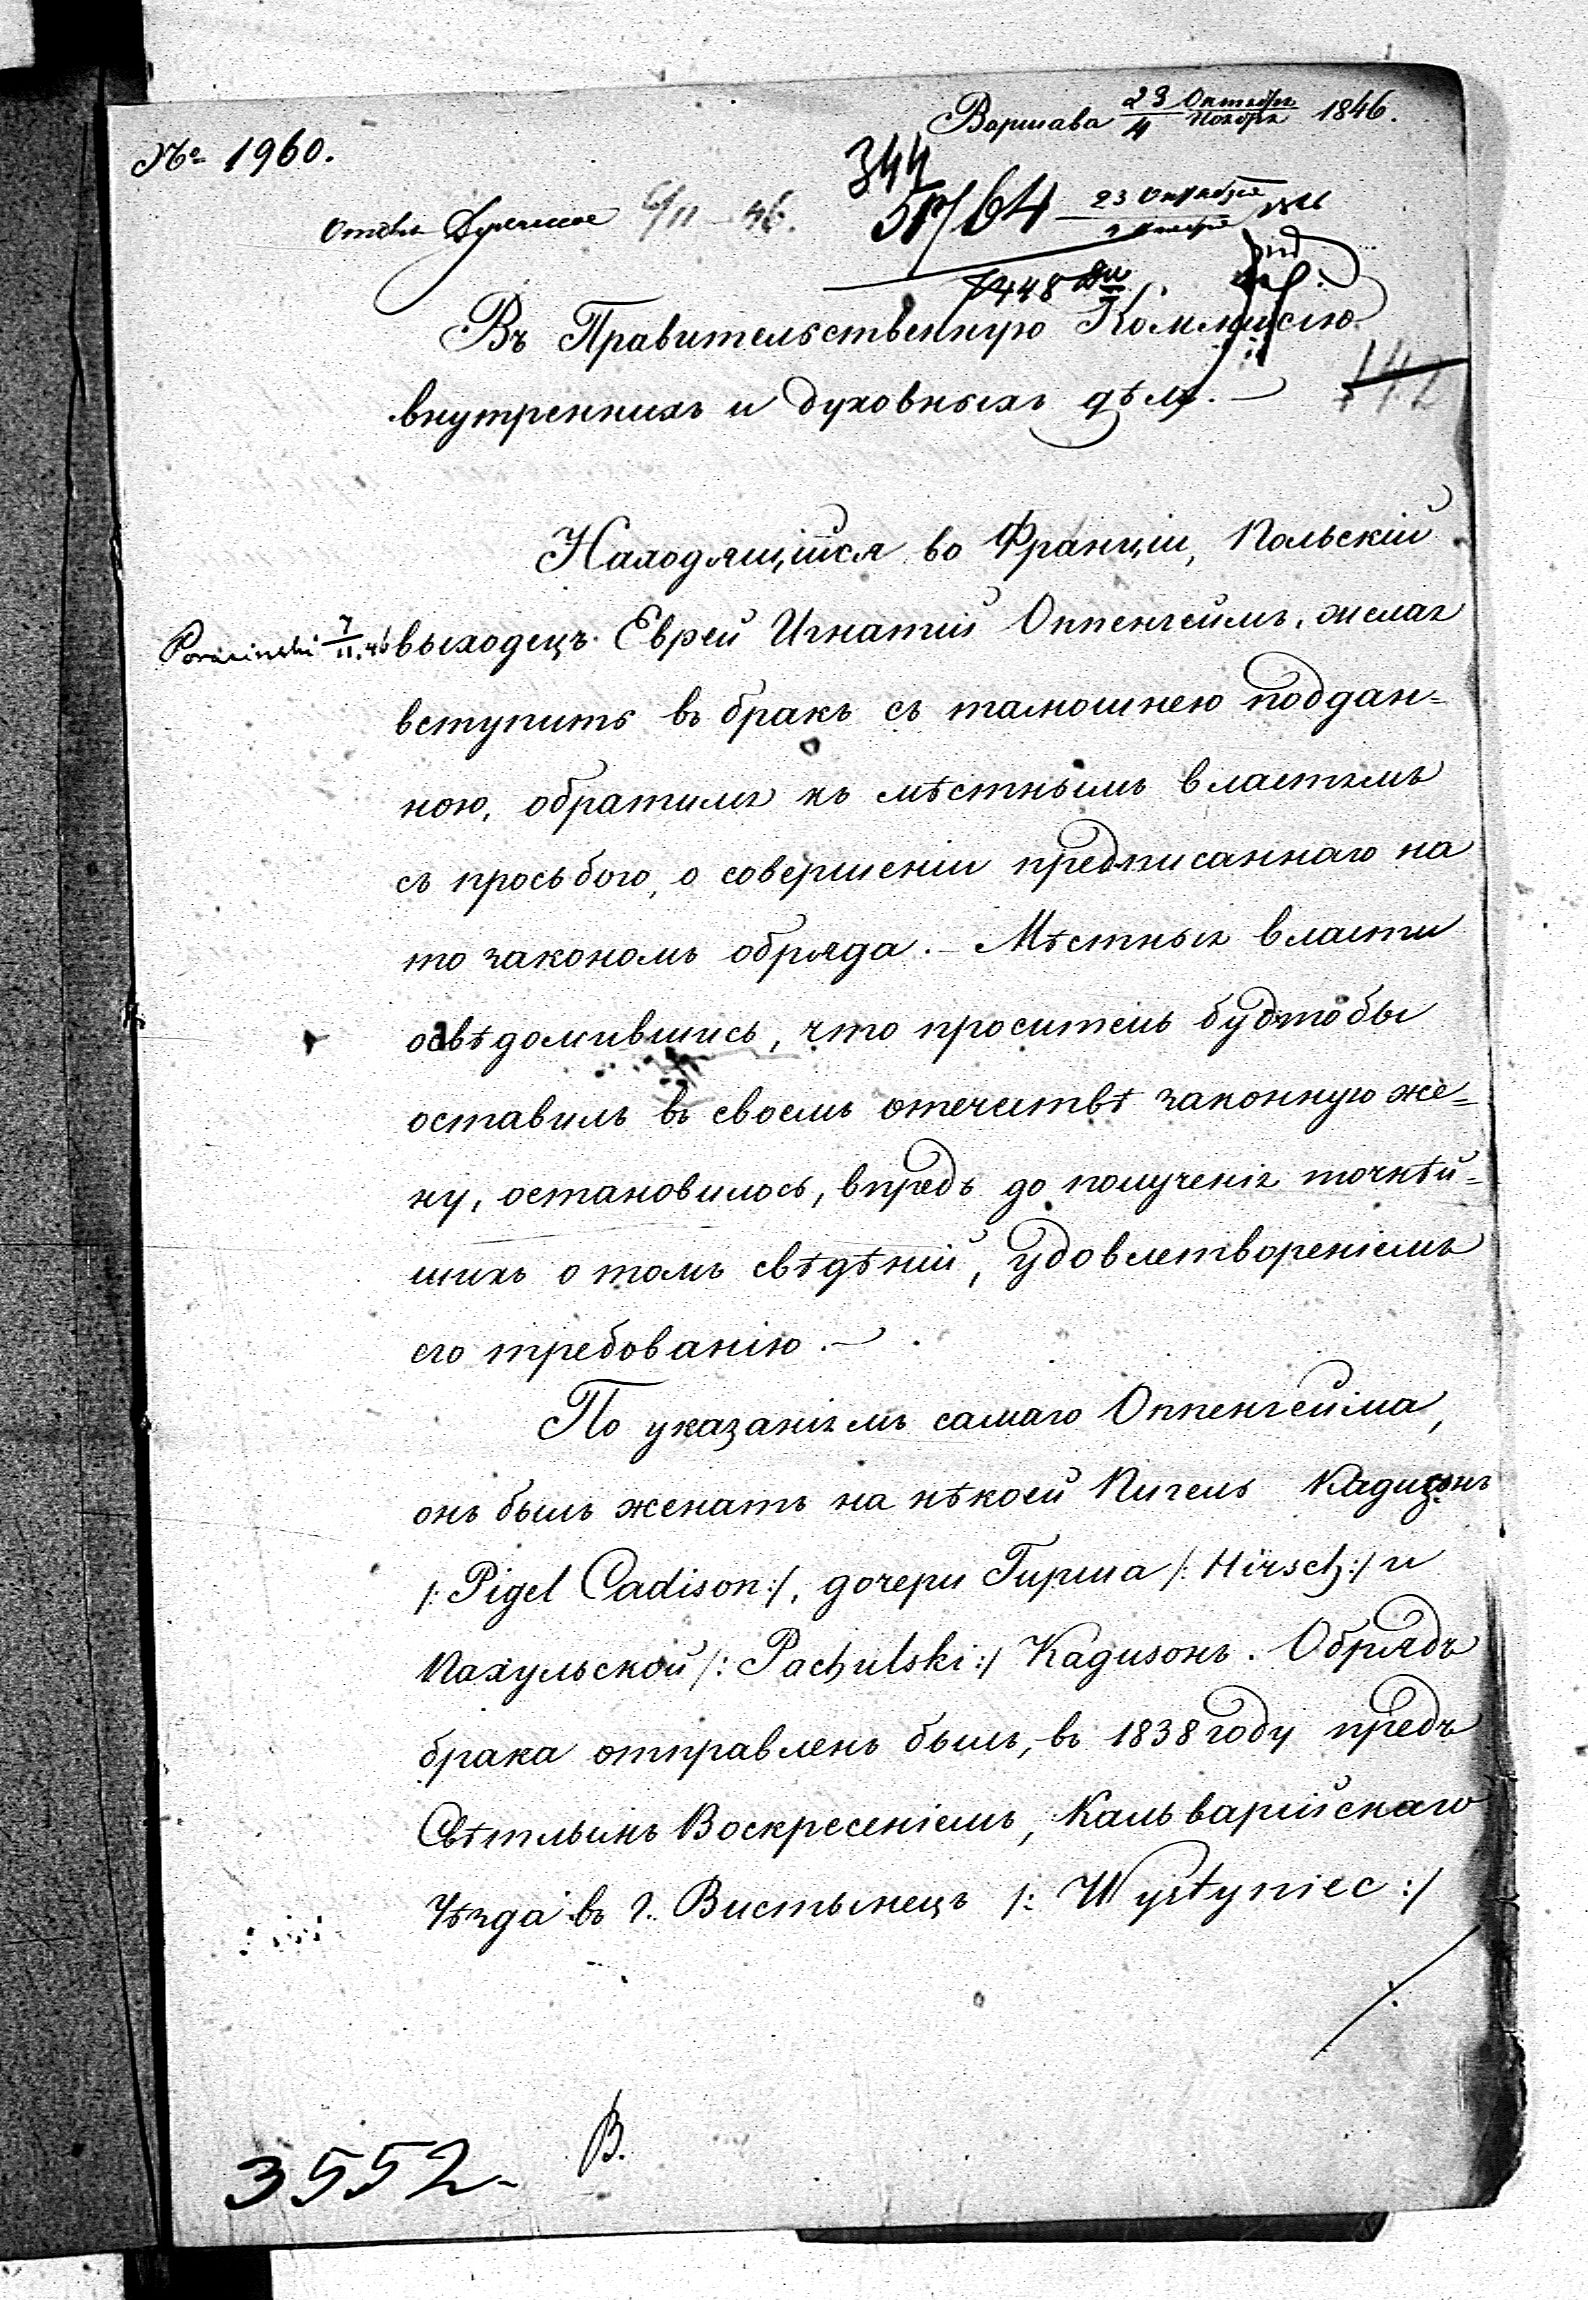 Варшава 23 Октября / 4 Ноября 1846.
№ 1960.
344
6/11 46.
64 23 Октября
448
Въ Правительственную Коммисію
внутреннихъ и духовныхъ дѣлъ. —
142
Находящійся во Франціи, Польскій
7/11.46 выходецъ Еврей Игнатій Оппенгеймъ, желая
вступить въ бракъ съ тамошнею поддан=
ною, обратилъ къ мѣстнымъ властямъ
съ просьбою, о совершеніи предписаннаго на
то закономъ обряда. — Мѣстныя власти
освѣдомившись, что проситель будтобы
оставилъ въ своемъ отечествѣ законную же=
ну, остановилось, впредь до полученія точнѣй=
шихъ о томъ свѣдѣній, удовлетвореніемъ
его требованію. —
По указаніямъ самаго Оппенгейма,
онъ былъ женатъ на нѣкоей Пигель Кадизонъ
/: Pigel Cadison :/, дочери Гирша /: Hirsch :/ и
Пахульской /: Pachulski :/ Кадизонъ. Обрядъ
брака отправленъ былъ, въ 1838 году предъ
Свѣтлымъ Воскресеніемъ, Кальварійскаго
Уѣзда въ г. Вистынецъ /: Wystyniec :/
./.
3552
В.